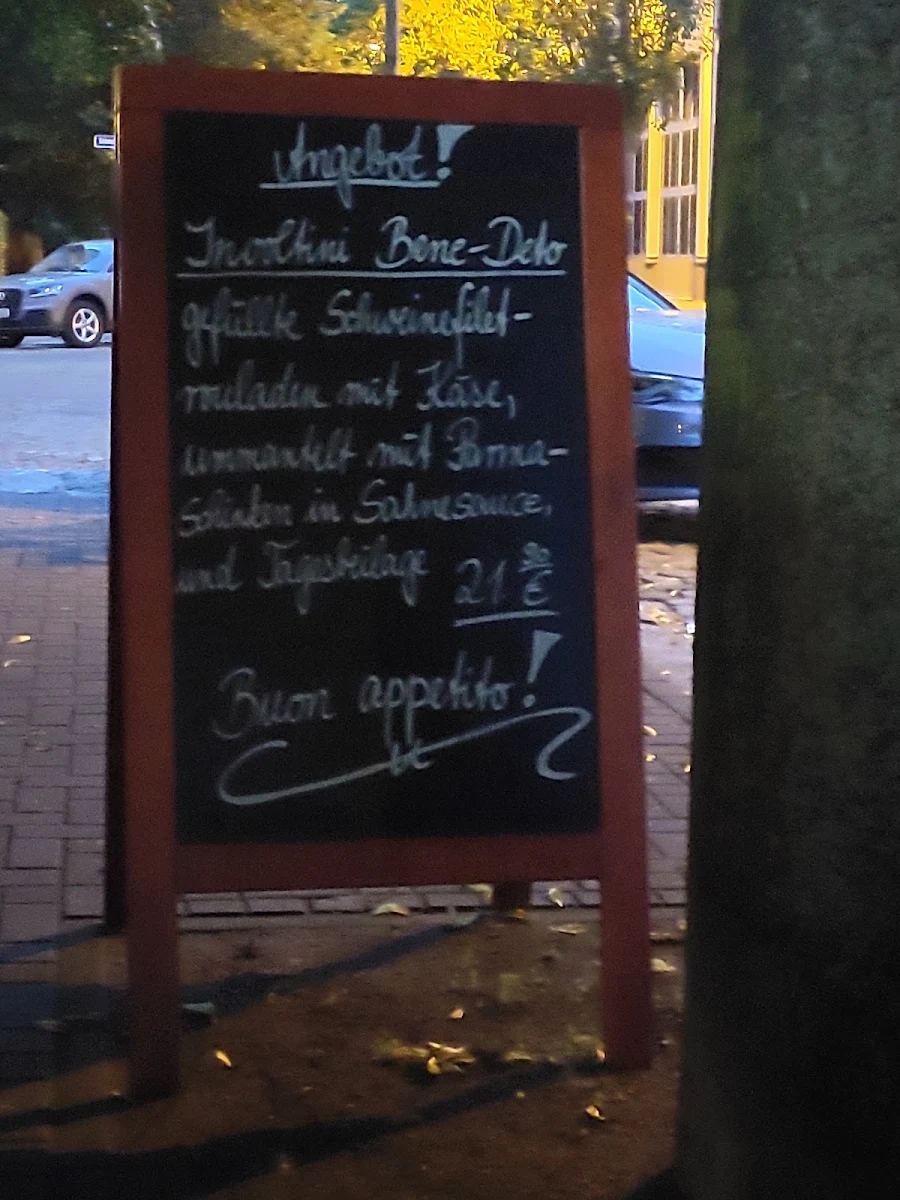 Angebot!
Involtini Bene-Deto
gefüllte Schweinefilet-
rouladen mit Käse,
ummantelt mit Parma-
Schinken in Sahnesauce,
und Tagesbeilage 21 90 €
Buon appetito!